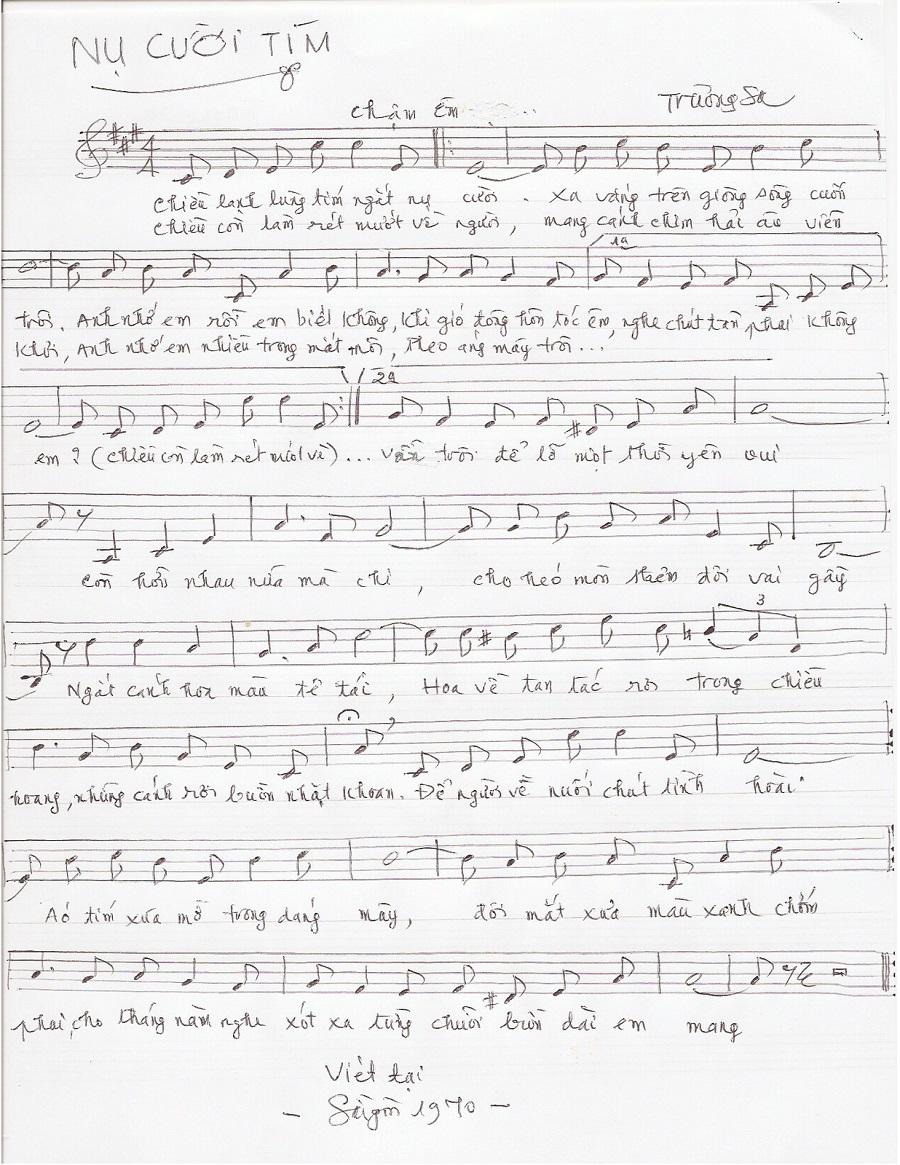 NỤ CƯỜI TÍM
Chậm Êm
Trường Sa
4
4
Chiều lạnh lùng tím ngắt nụ cười. Xa vắng trên giòng sông cuốn
Chiều còn lắm rét mướt về người, mang cánh chim hải âu viễn
1a
trôi. Anh nhớ em rồi em biết không, khi gió đọng hôn tóc êm, nghe chút tàn phai không
khơi, Anh nhớ em nhiều trong mắt môi, theo áng mây trôi...
2a
em? (Chiều còn lắm rét mướt về)... vẫn trôi để lỡ một thời yên vui
Còn hỏi nhau nữa mà chi, cho héo mòn thêm đôi vai gầy
3
Ngắt cánh hoa màu tê tái, Hoa về tan tác rơi trong chiều
hoang, những cánh rơi buồn nhặt khoan. Để người về nuối chút tình hoài
Áo tím xưa mờ trong dáng mây, đôi mắt xưa màu xanh chớm
phai, cho tháng năm nghe xót xa từng chuỗi buồn dài em mang
Viết tại
- Sàigòn 1970 -